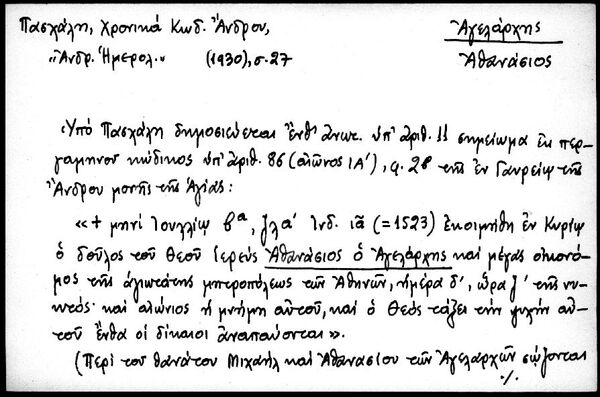 Πασχάλη, Χρονικά Κωδ. Ἄνδρου,
Ἀγελάρχης
«Ἀνδρ. Ἡμερολ.» (1930), σ. 27
Ἀθανάσιος
Ὑπό Πασχάλη δημοσιεύεται ἔνθ' ἀνωτ. ὑπ' ἀριθ. 11 σημείωμα ἐκ περ-
γαμηνοῦ κώδικος ὑπ' ἀριθ. 86 (αἰῶνος ΙΑ'), φ. 2β τῆς ἐν Γαυρείῳ τῆς
Ἄνδρου μονῆς τῆς Ἁγίας:
«+ μηνί Ἰουλλίῳ βᾳ, ζλα' Ἰνδ. ιᾱ (=1523) ἐκοιμήθη ἐν Κυρίῳ
ὁ δοῦλος τοῦ Θεοῦ ἱερεύς Ἀθανάσιος ὁ Ἀγελάρχης καί μέγας οἰκονό-
μος τῆς ἁγιωτάτης μητροπόλεως τῶν Ἀθηνῶν, ἡμέρα δ', ὥρα ζ' τῆς νυ-
κτός· καί αἰώνιος ἡ μνήμη αὐτοῦ, καί ὁ Θεός τάξει τήν ψυχήν αὐ-
τοῦ ἔνθα οἱ δίκαιοι ἀναπαύονται».
(Περί τοῦ θανάτου Μιχαήλ καί Ἀθανασίου τῶν Ἀγελαρχῶν σῴζονται
./.